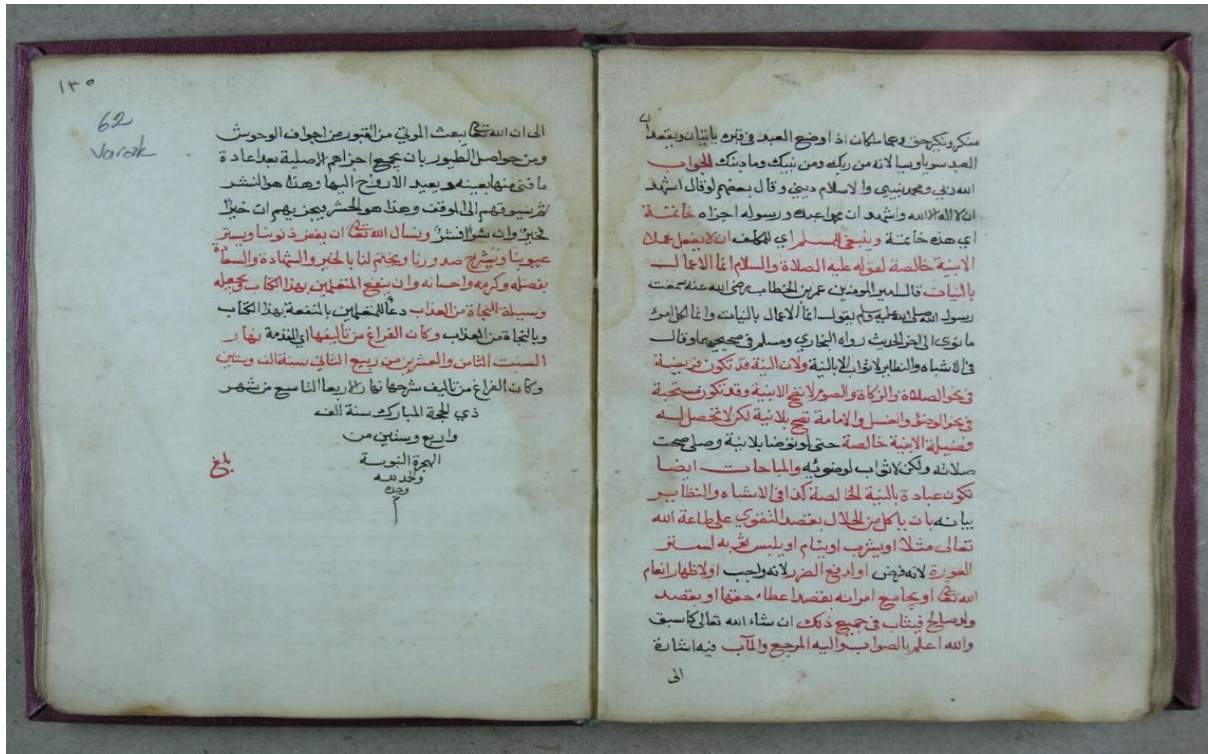 منكر ونكير حق وهما ملكان اذا وضع العبد في قبره يأتيان ويقعدان
العبد سويا ويسالانه من ربك ومن نبيك وما دينك للجواب
الله ربي ومحمد نبيي والاسلام ديني وقال بعضهم لو قال اشهد
ان لا اله الا الله واشهد ان محمدا عبده ورسوله اجزاه خاتمة
اي هذه خاتمة وينبغي للمسلم اي المكلف ان لا يفعل عملا
الا بنية خالصة لقوله عليه الصلاة والسلام انما الاعمال
بالنيات قال امير المومنين عمر بن الخطاب رضي الله عنه سمعت
رسول الله صلى الله عليه وسلم يقول انما الاعمال بالنيات وانما لكل امرئ
ما نوى الى اخر الحديث رواه البخاري ومسلم في صحيحيهما وقال
في الاشباه والنظاير لا ثواب الا بالنية ولان النية قد تكون فريضة
في نحو الصلاة والزكاة والصوم لا تصح الا بنية وقد تكون مستحبة
في نحو الوضوء والغسل والامامة تصح بلا نية لكن لا تحصل له
فضيلة الا بنية خالصة حتى لو توضا بلا نية وصلى صحت
صلاته ولكن لا ثواب لوضوئه والمباحات ايضا
تكون عبادة بالنية الخالصة كذا في الاشباه والنظاير
بيانه بان ياكل من الحلال بقصد التقوي على طاعة الله
تعالى مثلا او يشرب او ينام او يلبس ثوبه لستر
العورة لانه فرض او لدفع الضرر لانه واجب او لاظهار انعام
الله تعالى او يجامع امراته بقصد اعطاء حقها او بقصد
ولد صالح فيثاب في جميع ذلك ان شاء الله تعالى كما سبق
والله اعلم بالصواب واليه المرجع والمآب فيه اشارة
الى
١٣٥
62
Varak
الى ان الله تعالى يبعث الموتى من القبور من اجواف الوحوش
ومن حواصل الطيور بان يجمع اجزاهم الاصلية بعد اعادة
ما فنى منها بعينه ويعيد الارواح اليها وهذا هو النشر
ثم يسوقهم الى الموقف وهذا هو الحشر فيجزيهم ان خيرا
فخير وان شرا فشر ونسال الله تعالى ان يغفر ذنوبنا ويستر
عيوبنا ويشرح صدورنا ويختم لنا بالخير والشهادة والسعادة
بفضله وكرمه واحسانه وان ينفع المتعلمين بهذا الكتاب ويجعله
وسيلة للنجاة من العذاب دعا للمتعلمين بالمنفعة بهذا الكتاب
وبالنجاة من العذاب وكان الفراغ من تاليفها اي المقدمة نهار
السبت الثامن والعشرين من ربيع الثاني سنة الف وستين
وكان الفراغ من تاليف شرحها نهار الاربعا التاسع من شهر
ذي الحجة المبارك سنة الف
واربع وستين من
الهجرة النبوية
والحمد لله
وحده
م
بلغ